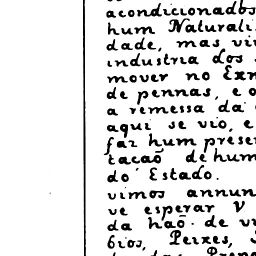 acondicionados
hum Naturali
dade, mas vi
industria dos
mover no Exm
de pennas, e o
a remessa da
aqui se vio, e
faz hum presen
tacaõ de hum
do Estado.
vimos annun
ve esperar V
da haõ de vi
bios, Peixes,